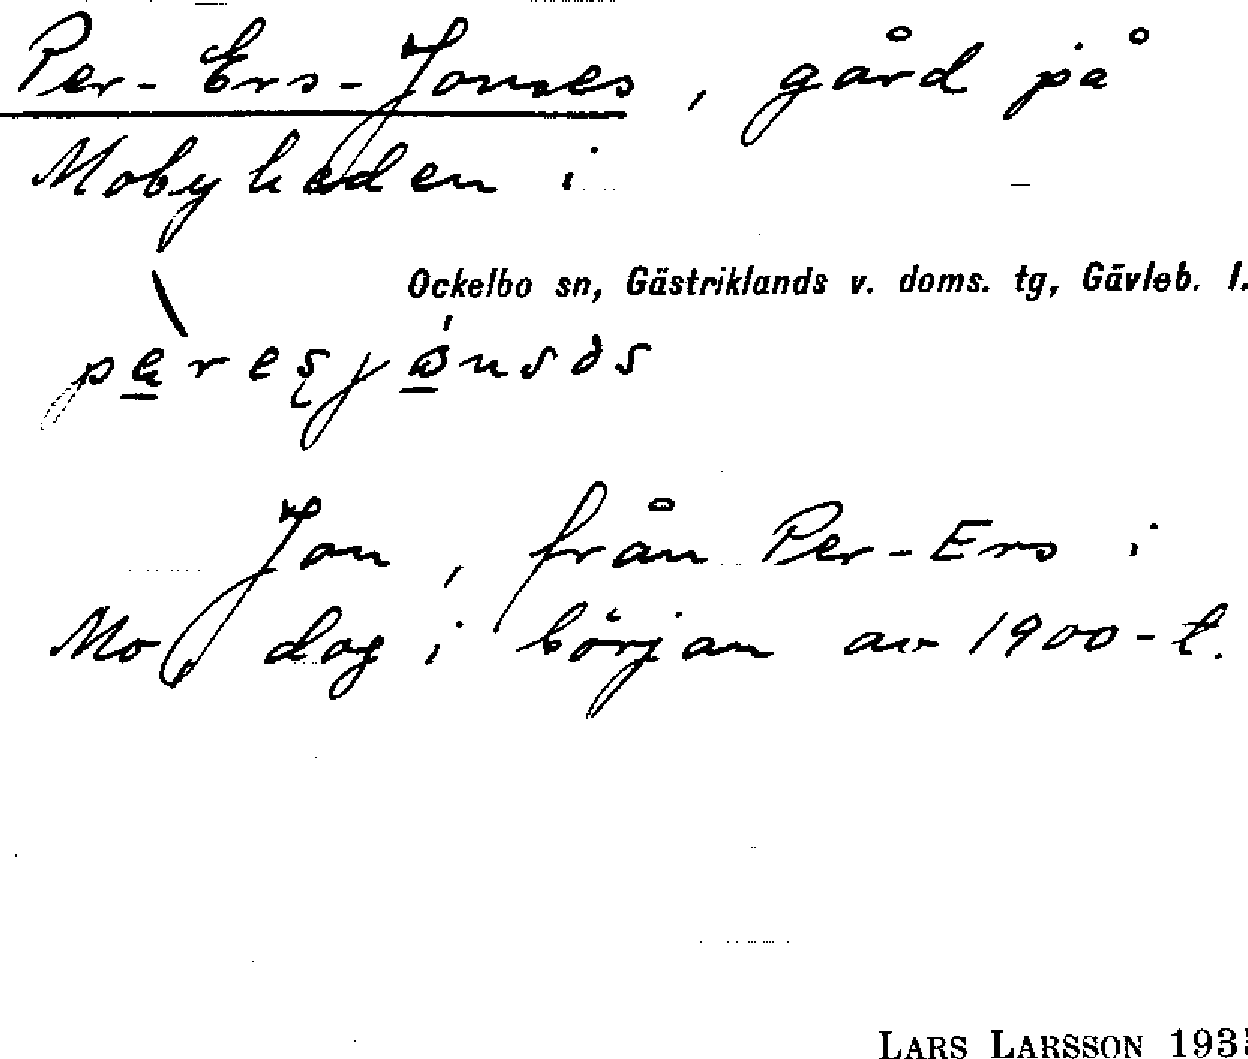 Per-Ers-Jonses, gård på
Mobyheden i
Ockelbo sn, Gästriklands v. doms. tg, Gävleb. l.
Jon, från Per-Ers i
Mo, dog i början av 1900-t.
LARS LARSSON 193